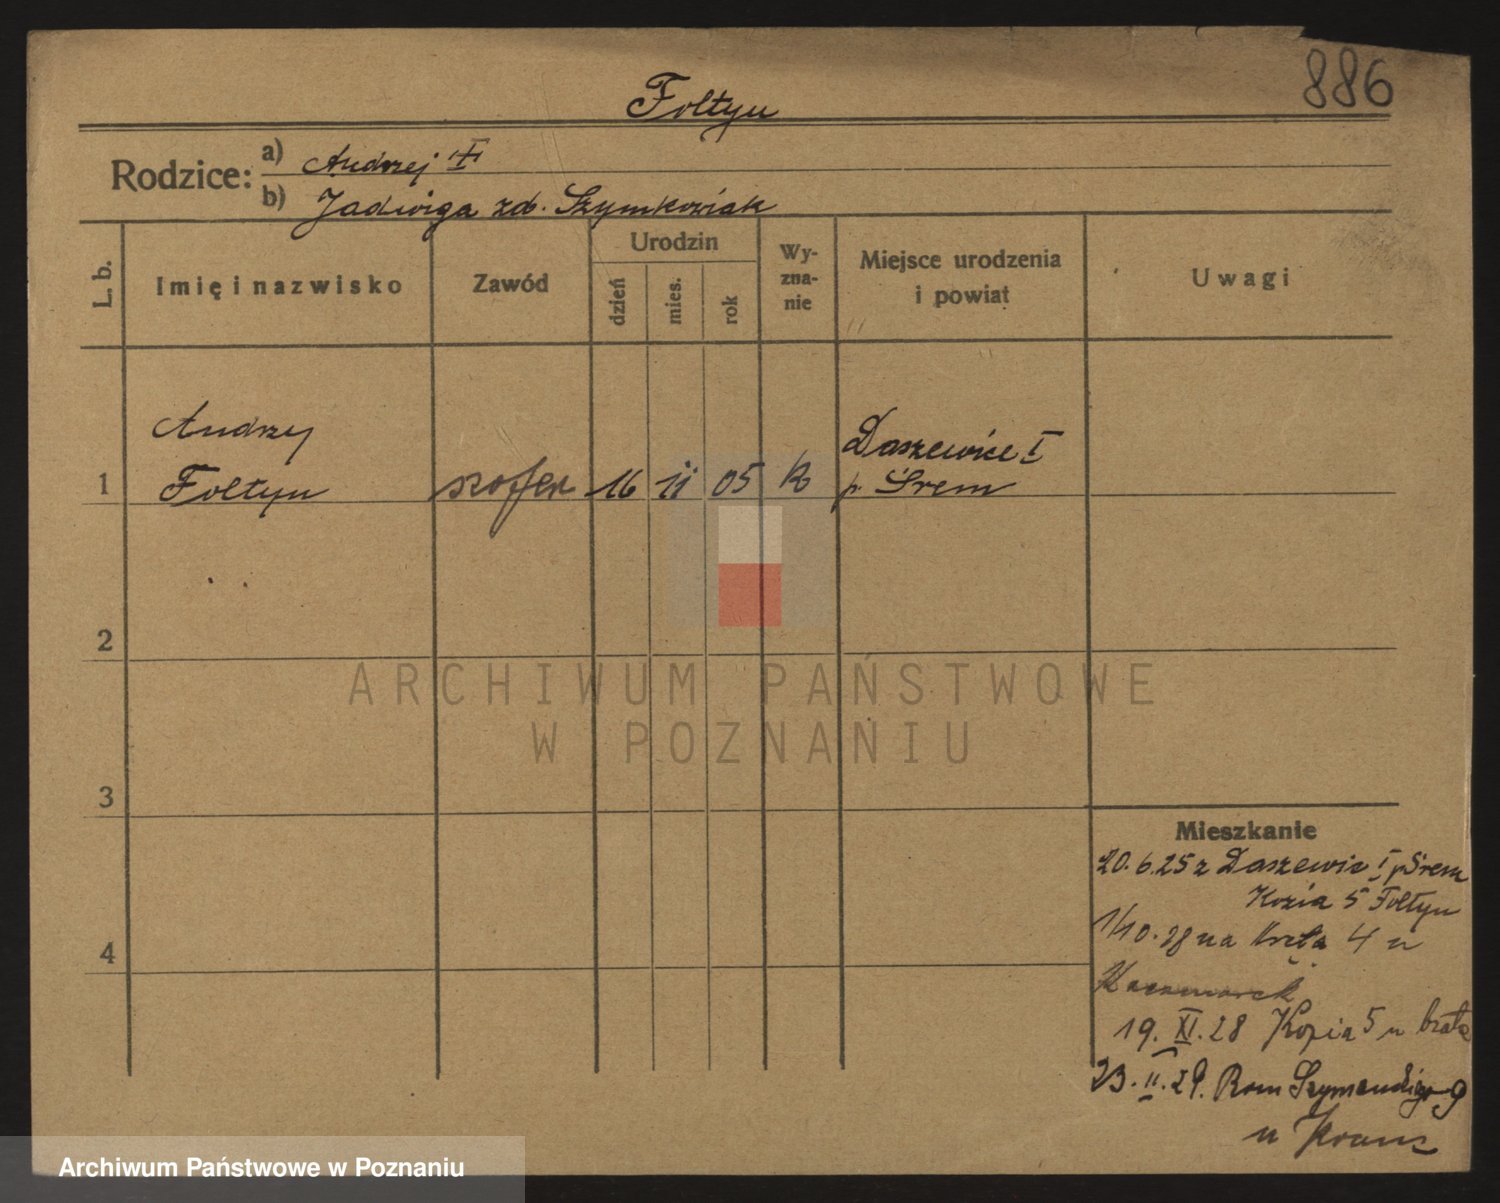 886
Fołtyn
Rodzice: a) Andrzej
b) Jadwiga zd. Szymkowiak
L. b. Imię i nazwisko Zawód Urodzin dzień mies. rok Wyznanie Miejsce urodzenia i powiat Uwagi
Andrzej
Fołtyn
1 szofer 16 11 05 R
Daszewice I
p. Śrem
2
3
4
Mieszkanie
20.6.25 z Daszewic I p Śrem
Kozia 5 Fołtyn
1/10.28 na Kręta 4 u
Kaczmarek
19. XI. 28 Kozia 5 u brata
23. II. 29. Rom Szymańskiego 9
u Kraus
ARCHIWUM PAŃSTWOWE
W POZNANIU
Archiwum Państwowe w Poznaniu